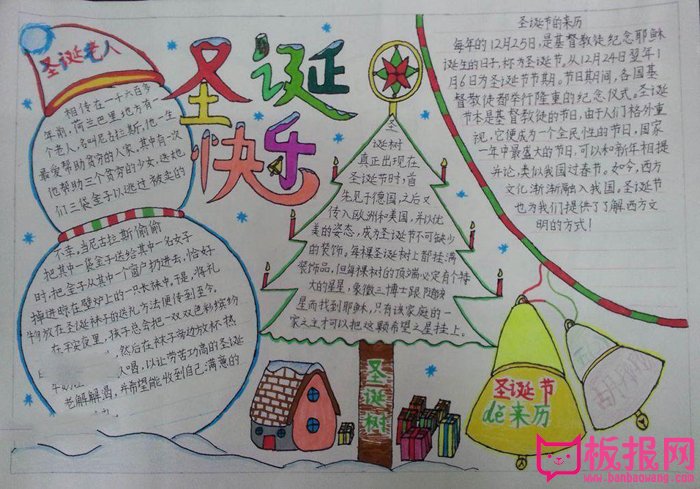 圣诞老人
相传在一千六百多
年前,荷兰巴里地方有一
个老人,名叫尼古拉斯,他一生
最爱帮助贫穷的人家。其中有一次
他帮助三个贫穷的少女,送他
们三袋金子以逃过被卖的
不幸。当尼古拉斯偷偷
把其中一袋金子送给其中一名女子
时,把金子从其中一个窗户扔进去,恰好
掉进晾在壁炉上的一只长袜中。于是,将礼
物放在圣诞袜子的送礼方法便传到至今。
在平安夜里,孩子总会把一双双色彩缤纷
然后在袜子旁边放杯热
人喝,以让劳苦功高的圣诞
老解解渴,并希望能收到自己满意的
圣诞
快乐
圣
诞树
真正出现在
圣诞节时,首
先见于德国,之后又
传入欧洲和美国,并以优
美的姿态,成为圣诞节不可缺少
的装饰。每棵圣诞树上都挂满
装饰品,但每棵树的顶端必定有个特
大的星星,象徵三博士跟随该
星而找到耶稣,只有该家庭的一
家之主才可以把这颗希望之星挂上。
圣诞树
圣诞节的来历
每年的12月25日,是基督教徒纪念耶稣
诞生的日子,称为圣诞节。从12月24日翌年1
月6日为圣诞节节期。节日期间,各国基
督教徒都举行隆重的纪念仪式。圣诞
节本是基督教徒的节日,由于人们格外重
视,它便成为一个全民性的节日,国家
一年中最盛大的节日,可以和新年相提
并论,类似我国过春节。如今,西方
文化渐渐融入我国,圣诞节
也为我们提供了了解西方文
明的方式!
圣诞节
dě来历
板报网
www.banbaowang.com